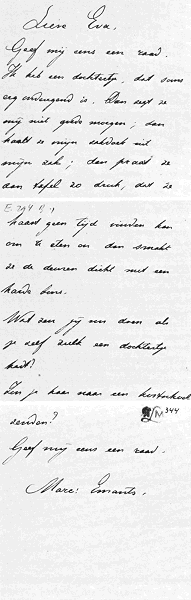 Lieve Eva,
Geef mij eens een raad.
Ik heb een dochtertje, dat soms
erg ondeugend is. Dan zegt ze
mij niet goede morgen; dan
haalt ze mijn zakdoek uit
mijn zak; dan praat ze
aan tafel zo druk, dat ze
haast geen tijd vinden kan
om te eten en dan smakt
ze de deuren dicht met een
harde bons.
Wat zou jij nu doen als
je zelf zulk een dochtertje
hadt?
Zou je haar naar een kostschool
zenden?
M 344
Geef mij eens een raad.
Marc: Emants.